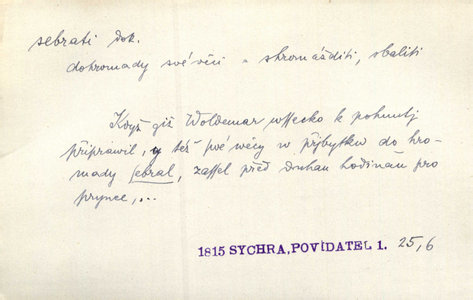 sebrati dok.
dohromady své věci = shromážditi, sbaliti
Když giž Woldemar wssecko k pohnutj
připrawil, y též swé wěcy w přjbytku do hro-
mady sebral, zassel před druhau hodinau pro
prynce,...
1815 SYCHRA, POVÍDATEL 1. 25,6